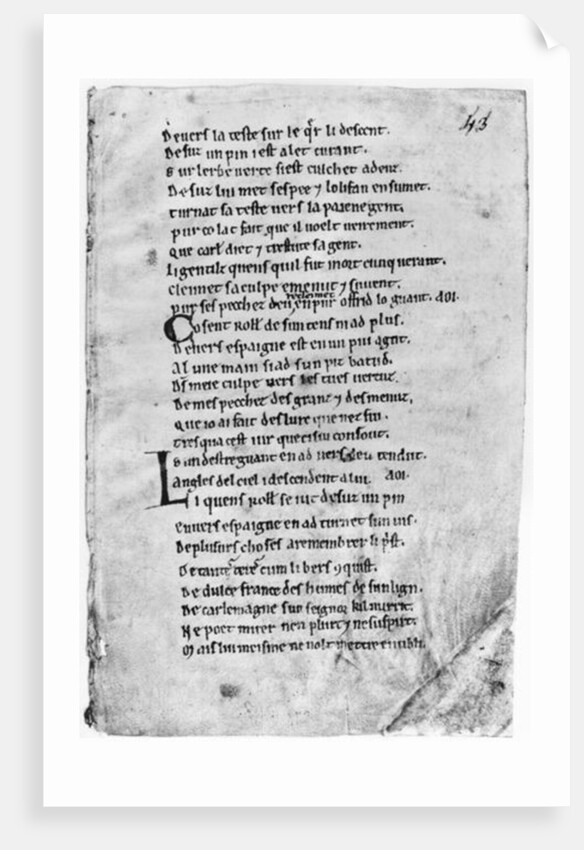 43
Devers la teste sur le q̃r li descent.
Desuz un pin i est alet curant.
Sur lerbe verte siest culchet adenz.
Desuz lui met sespee ⁊ lolifan ensumet.
turnat sa teste vers la paiene gent.
pur co lat fait que il voelt veirement.
Que carl diet ⁊ trestute sa gent.
li gentilz quens quil fut mort cunquerant.
cleimet sa culpe e menut ⁊ suvent.
pur ses pecchez deu en puroffrid lo guant. aoi.
recleimet
Co sent Roll de sun tens ni ad plus.
Devers espaigne est en un pui agut.
A l une main si ad sun piz batud.
Ds meie culpe vers les tues vertuz.
De mes pecchez des granz ⁊ des menuz.
Que io ai fait des lure que nez fui.
tresqua cest iur que ci sui consout.
Sun destre guant en ad vers deu tendut.
Angles del ciel i descendent a lui. aoi.
Li quens Roll se iut desuz un pin
Envers espaigne en ad turnet sun vis.
De plusurs choses a remembrer li p̃st.
De tantes teres cum li bers ꝯquist.
De dulce france des humes de sun lign.
De carlemagne sun seignor kil nurrit.
Ne poet muer nen plurt ⁊ ne suspirt.
Mais lui meisme ne volt mettre en ubli.